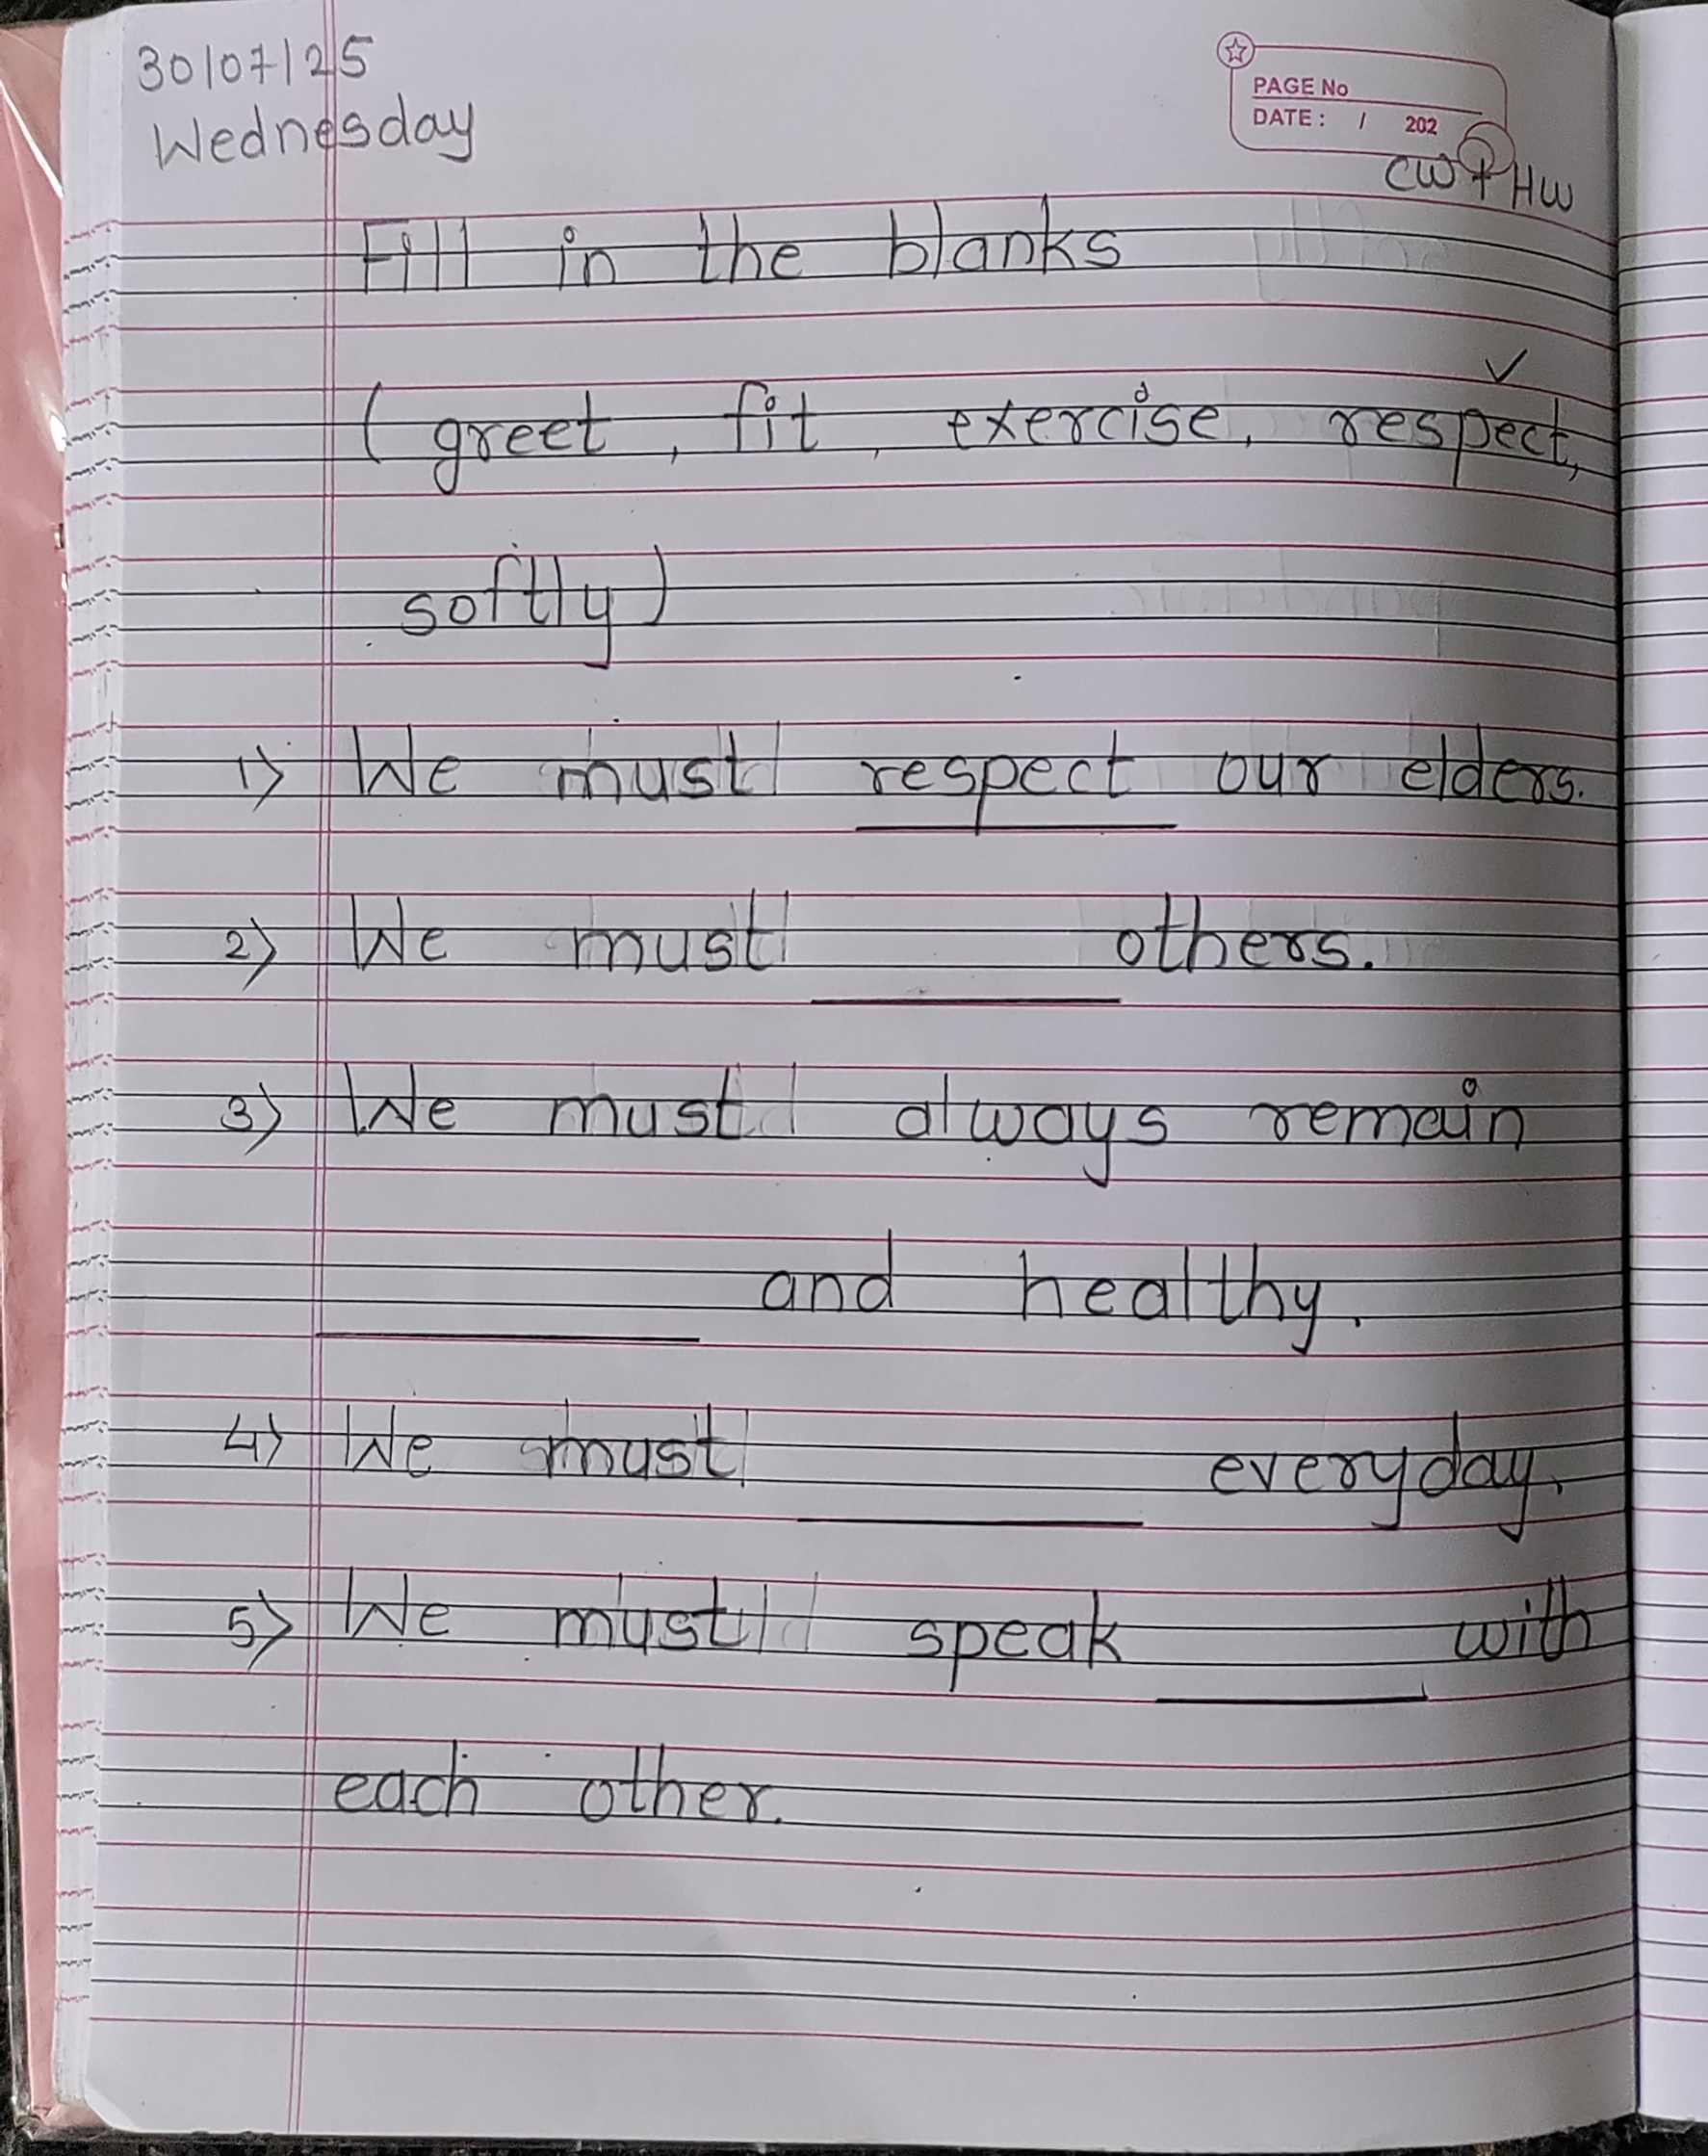 30/07/25
Wednesday
PAGE No
DATE : / 202
CW + HW
Fill in the blanks
✓
(greet, fit, exercise, respect,
softly)
1) We must respect our elders.
2) We must ______ others.
3) We must always remain
______ and healthy.
4) We must ______ everyday.
5) We must speak ______ with
each other.